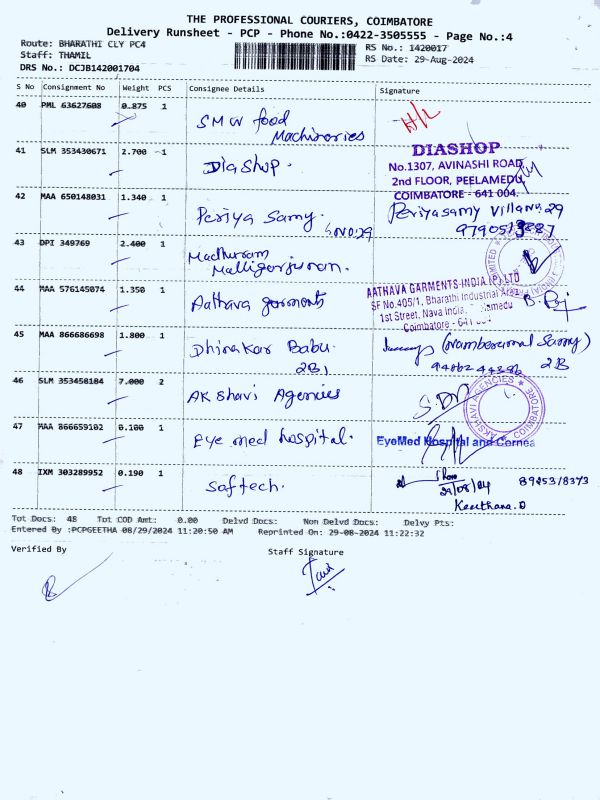 THE PROFESSIONAL COURIERS, COIMBATORE
Delivery Runsheet - PCP - Phone No.:0422-3505555 - Page No.:4
Route: BHARATHI CLY PC4
RS No.: 1420017
Staff: THAMIL
RS Date: 29-Aug-2024
DRS No.: DCJB142001704
S No Consignment No Weight PCS Consignee Details Signature
40 PML 63627608 0.875 1 SMW food
Machineries H/L
41 SLM 353430671 2.700 1 Diashop.
DIASHOP
No.1307, AVINASHI ROAD
2nd FLOOR, PEELAMEDU,
COIMBATORE - 641 004.
42 MAA 650148031 1.340 1 Periya Samy. Periyasamy Villa No. 29
S.NO:29
43 DPI 349769 2.400 1 Madhuram
Malligarjunan.
44 MAA 576145074 1.350 1 Aathava garments
AATHAVA GARMENTS-INDIA (P) LTD
SF No.405/1, Bharathi Industrial Area
1st Street, Nava India,
Coimbatore
45 MAA 866686698 1.800 1 Dhinakar Babu.
2B1 2B
46 SLM 353458184 7.000 2 Akshavi Agencies
AKSHAVI AGENCIES
COIMBATORE
47 MAA 866659102 0.100 1 Eye med hospital. EyeMed Hospital and Cornea
48 IXM 303289952 0.190 1 Saftech. 29/08/24 89253/8373
Keerthana.D
Tot Docs: 48 Tot COD Amt: 0.00 Delvd Docs: Non Delvd Docs: Delvy Pts:
Entered By :PCPGEETHA 08/29/2024 11:20:50 AM Reprinted On: 29-08-2024 11:22:32
Verified By Staff Signature